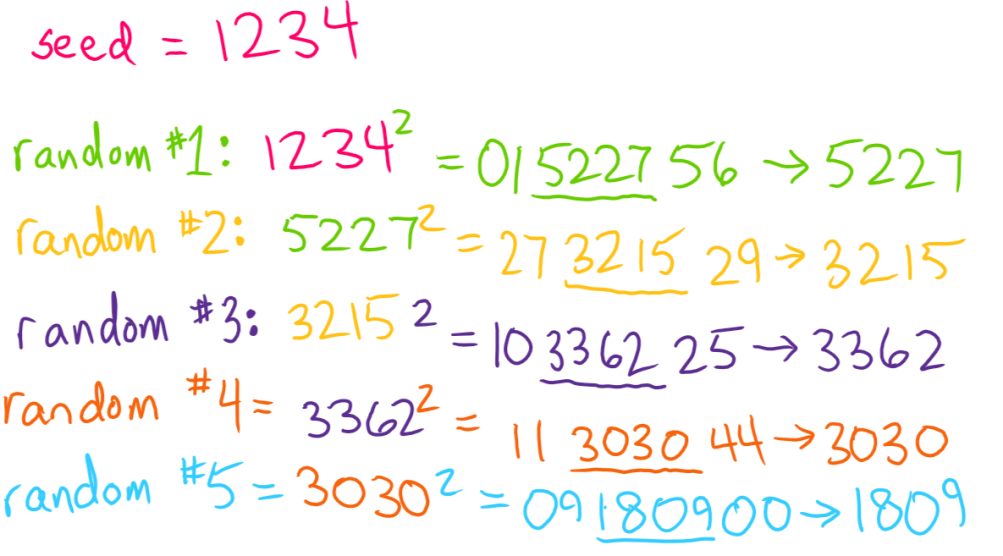 seed = 1234
random #1: 1234² = 01522756 → 5227
random #2: 5227² = 27 3215 29 → 3215
random #3: 3215² = 10 3362 25 → 3362
random #4 = 3362² = 11 3030 44 → 3030
random #5 = 3030² = 09180900 → 1809